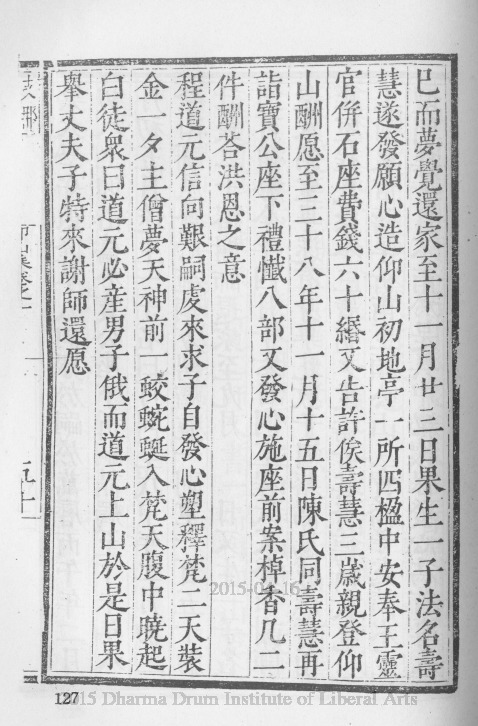 已而夢覺還家至十一月廿三日果生一子法名壽
慧遂發願心造仰山初地亭一所四楹中安奉王靈
官併石座費錢六十緡又告許俟壽慧三歲親登仰
山酬愿至三十八年十一月十五日陳氏同壽慧再
詣寶公座下禮懺八部又發心施座前案棹香几二
件酬荅洪恩之意
程道元信向艱嗣虔來求子自發心塑釋梵二天裝
金一夕主僧夢天神前一蛟蜿蜒入梵天腹中曉起
白徒衆曰道元必產男子俄而道元上山於是日果
舉丈夫子特來謝師還愿
127
2015-04-16
2015 Dharma Drum Institute of Liberal Arts